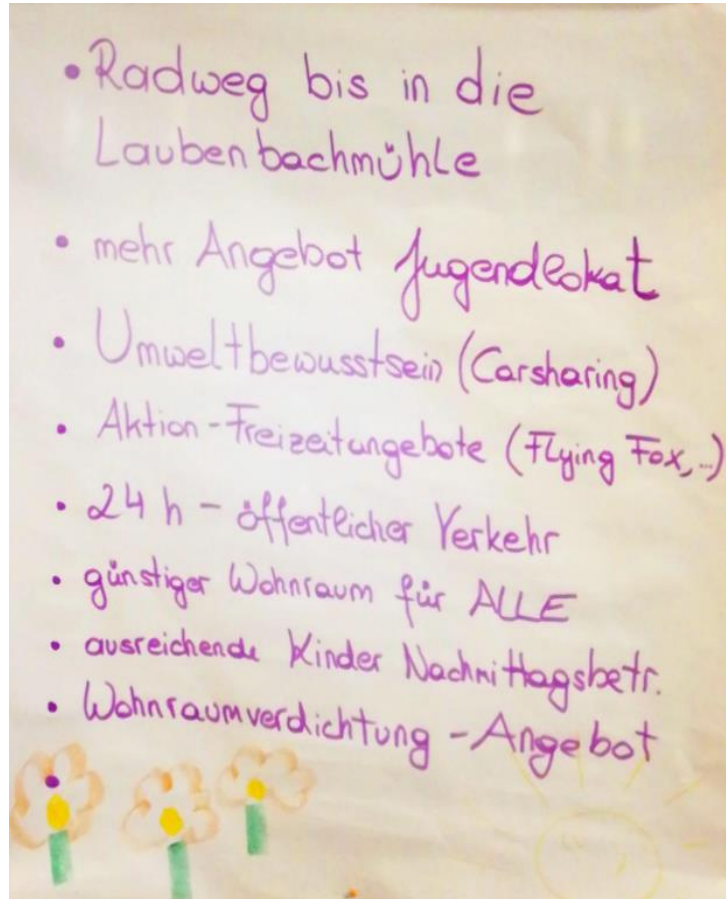 • Radweg bis in die
Laubenbachmühle
• mehr Angebot Jugendlokal
• Umweltbewusstsein (Carsharing)
• Aktion-Freizeitangebote (Flying Fox,..)
• 24 h - öffentlicher Verkehr
• günstiger Wohnraum für ALLE
• ausreichende Kinder Nachmittagsbetr.
• Wohnraumverdichtung - Angebot